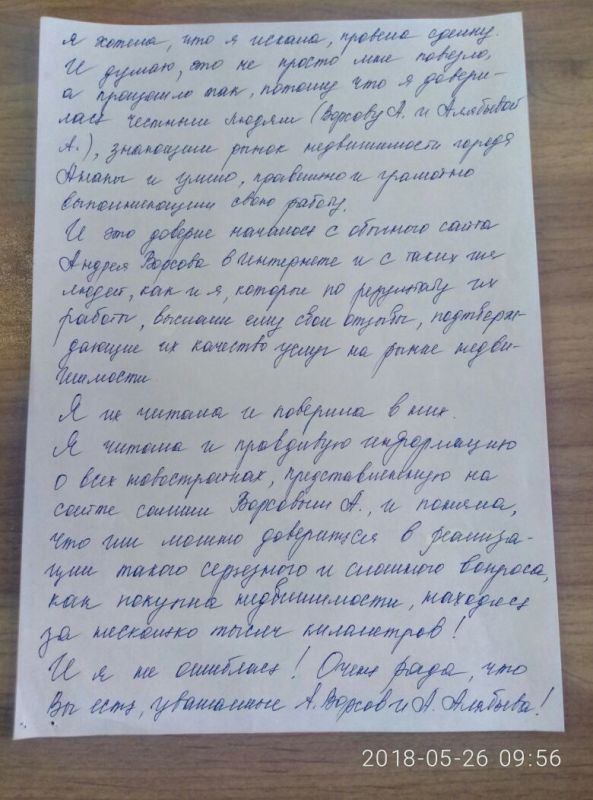 я хотела, что я искала, провела сделку.
И думаю, это не просто мне повезло,
а произошло так, потому что я довери-
лась честным людям (Ворсову А. и Алябьевой
А.), знающим рынок недвижимости города
Анапы и умно, правильно и грамотно
выполняющим свою работу.
И это доверие началось с обычного сайта
Андрея Ворсова в интернете и с таких же
людей, как и я, которые по результату их
работы, выслали ему свои отзывы, подтверж-
дающие их качество услуг на рынке недви-
жимости.
Я их читала и поверила в них.
Я читала и правдивую информацию
о всех новостройках, представленную на
сайте самим Ворсовым А., и поняла,
что им можно довериться в реализа-
ции такого серьезного и сложного вопроса,
как покупка недвижимости, находясь
за несколько тысяч километров!
И я не ошиблась! Очень рада, что
Вы есть, уважаемые А. Ворсов и А. Алябьева!
2018-05-26 09:56